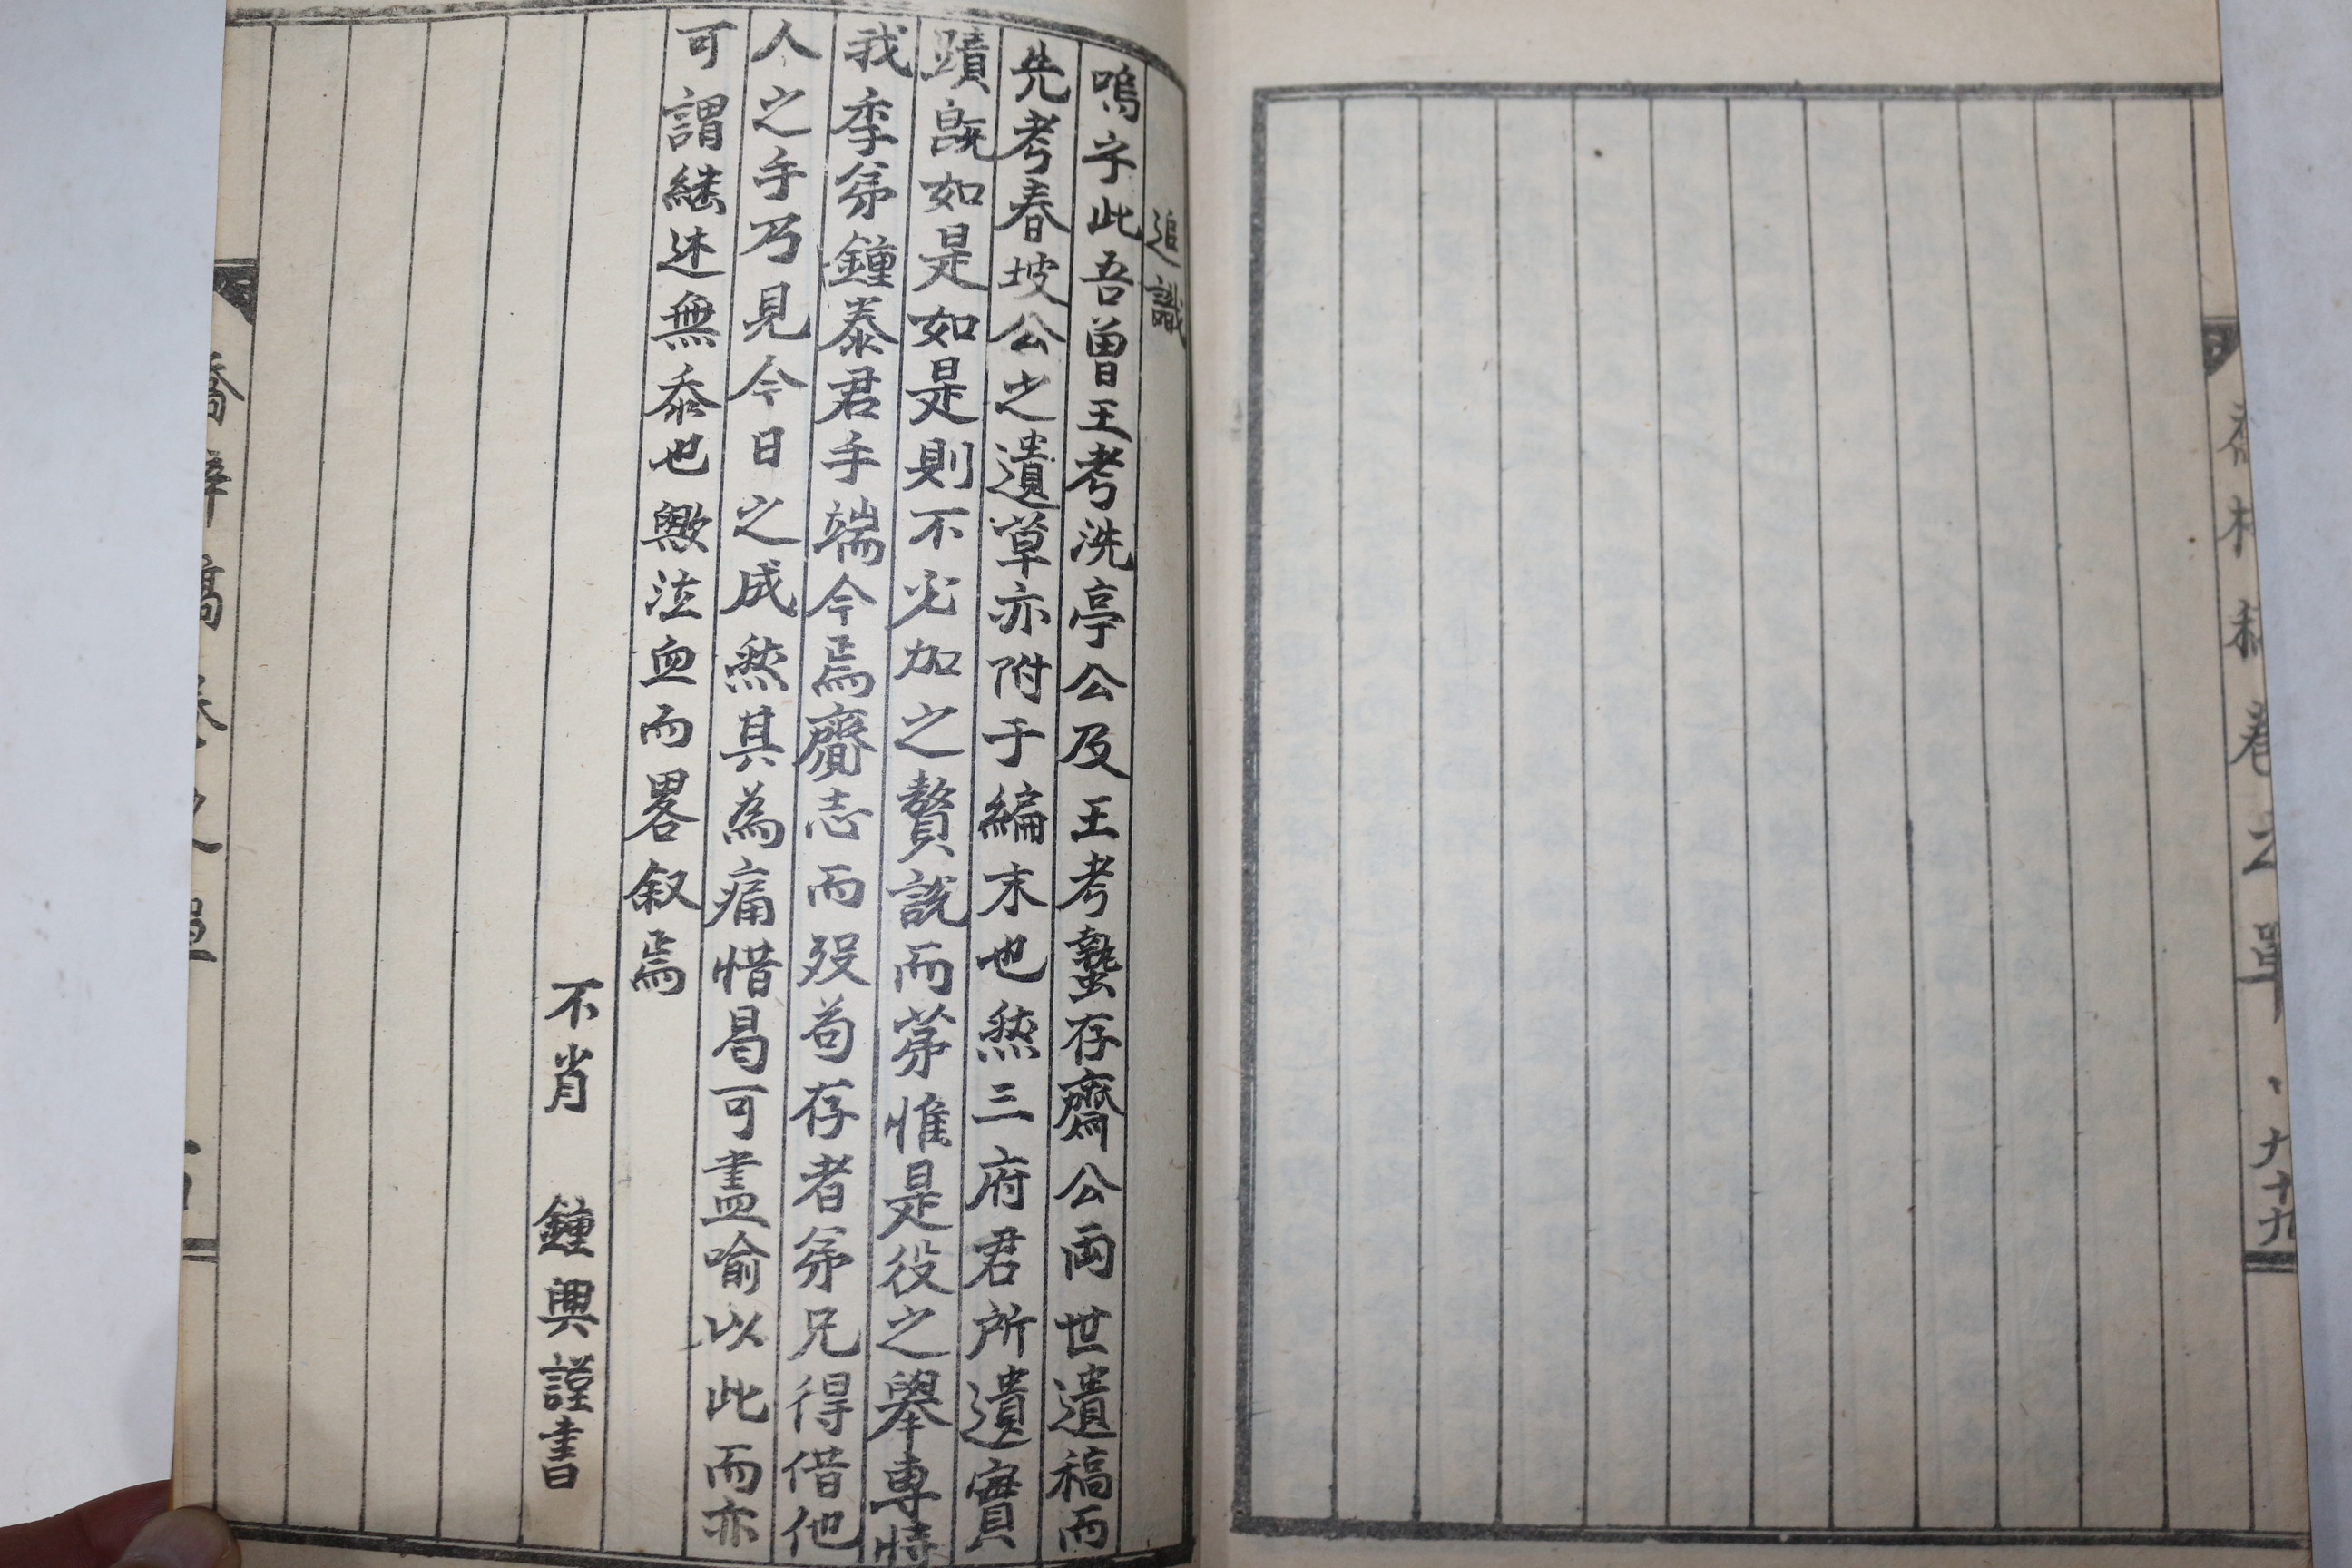 卷之單 九十九
追識
嗚乎此吾曽王考洗亭公及王考蟄存齋公兩世遺稿而
先考春坡公之遺草亦附于編末也然三府君所遺實
蹟旣如是如是則不必加之贅說而茅惟是役之擧專恃
我季弟鍾泰君手端今焉齎志而歿苟存者弟兄得借他
人之手乃見今日之成然其為痛惜曷可盡喻以此而亦
可謂継述無忝也歟泣血而畧叙焉
不肖 鍾興謹書